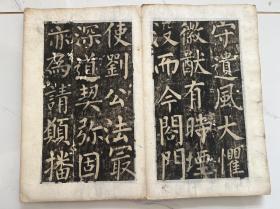 守遺風大懼
徽猷有時堙
没而今閤門
使劉公法㝡
深道契弥固
亦為請願播